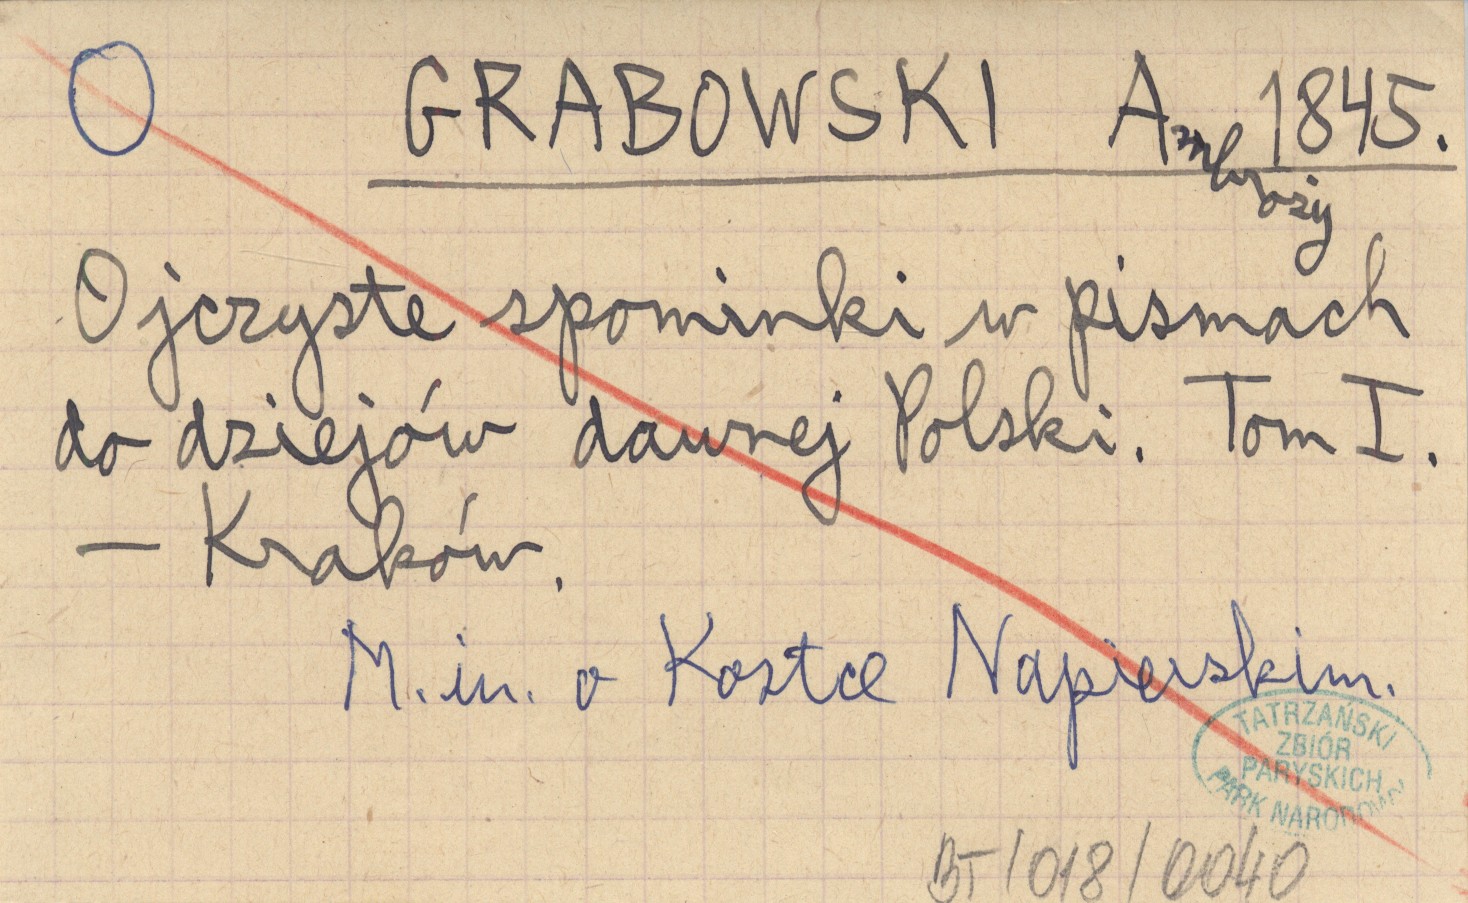 O GRABOWSKI Ambroży 1845.
Ojczyste spominki w pismach
do dziejów dawnej Polski. Tom I.
— Kraków.
M. in. o Kostce Napierskim.
TATRZAŃSKI
ZBIÓR
PARYSKICH
PARK NARODOWY
BT/018/0040